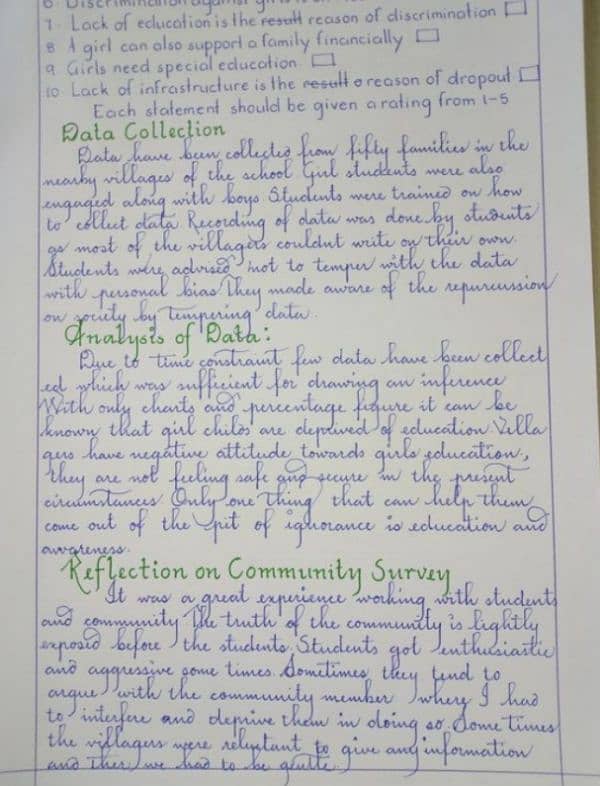 6. Discrimination against girls is
7. Lack of education is the result reason of discrimination
8 A girl can also support a family financially
9. Girls need special education
10 Lack of infrastructure is the result o reason of dropout
Each statement should be given a rating from 1-5
Data Collection
Data have been collected from fifty families in the
nearby villages of the school Girl students were also
engaged along with boys Students were trained on how
to collect data Recording of data was done by students
as most of the villagers couldnt write on their own.
Students were advised not to temper with the data
with personal bias They made aware of the repurcussion
on society by tempering data.
Analysis of Data:
Due to time constraint few data have been collect
ed which was sufficient for drawing an inference
With only charts and percentage figure it can be
known that girl childs are deprived of education Villa
gers have negative attitude towards girls education,
they are not feeling safe and secure in the present
circumstances Only one thing that can help them
come out of the pit of ignorance is education and
awareness.
Reflection on Community Survey
It was a great experience working with students
and community The truth of the community is lightly
exposed before the students Students got enthusiastic
and aggressive some times. Sometimes they tend to
argue with the community member where I had
to interfere and deprive them in doing so Some times
the villagers were reluctant to give any information
and then we had to be gentle.